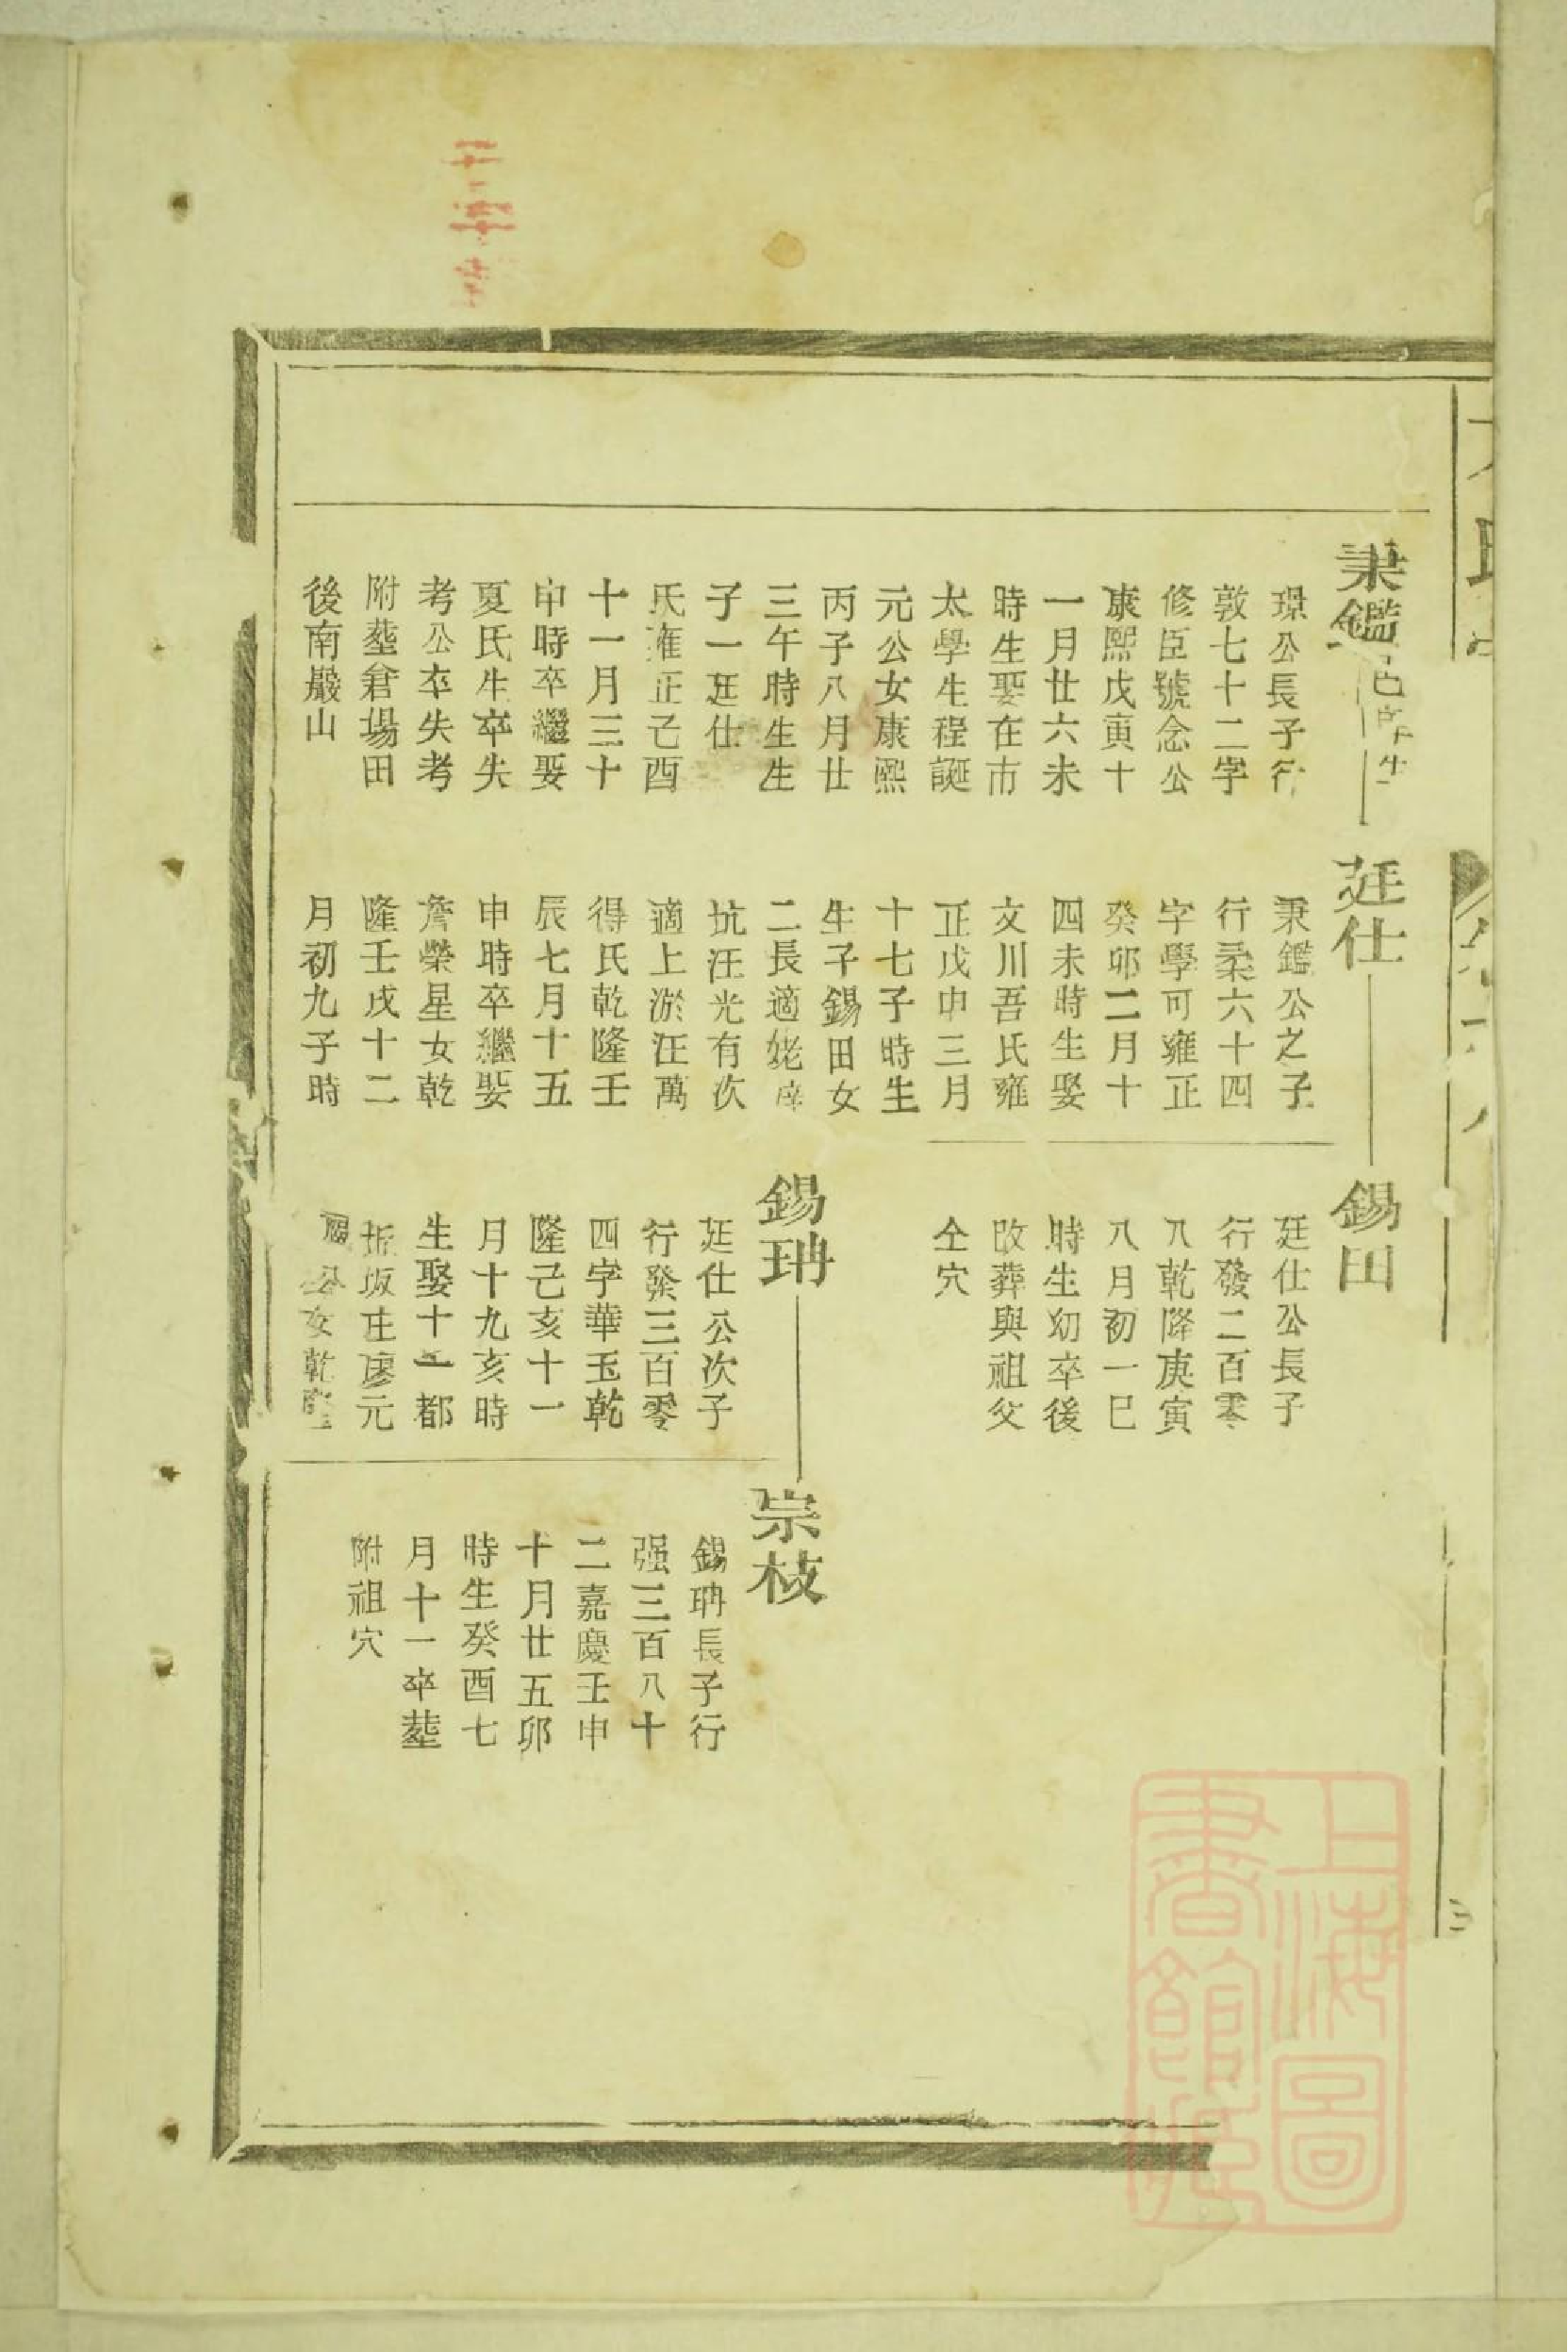 秉鑑邑庠生
璟公長子行
敦七十二字
修臣號念公
康熙戊寅十
一月廿六未
時生娶在市
太學生程誕
元公女康熙
丙子八月廿
三午時生生
子一廷仕
氏雍正己酉
十一月三十
申時卒繼娶
夏氏生卒失
考公卒失考
附塟倉塲田
後南巖山
廷仕
秉鑑公之子
行柔六十四
字學可雍正
癸卯二月十
四未時生娶
文川吾氏雍
正戊申三月
十七子時生
生子錫田女
二長適姥
坑汪光有次
適上淤汪萬
得氏乾隆壬
辰七月十五
申時卒繼娶
詹榮星女乾
隆壬戌十二
月初九子時
錫田
廷仕公長子
行發二百零
八乾隆庚寅
八月初一巳
時生幼卒後
改葬與祖父
仝穴
錫珃
廷仕公次子
行發三百零
四字華玉乾
隆己亥十一
月十九亥時
生娶十一都
坂庄廖元
公女乾隆
崇枝
錫珃長子行
强三百八十
二嘉慶壬申
十月廿五卯
時生癸酉七
月十一卒塟
附祖穴
上海圖
書館藏